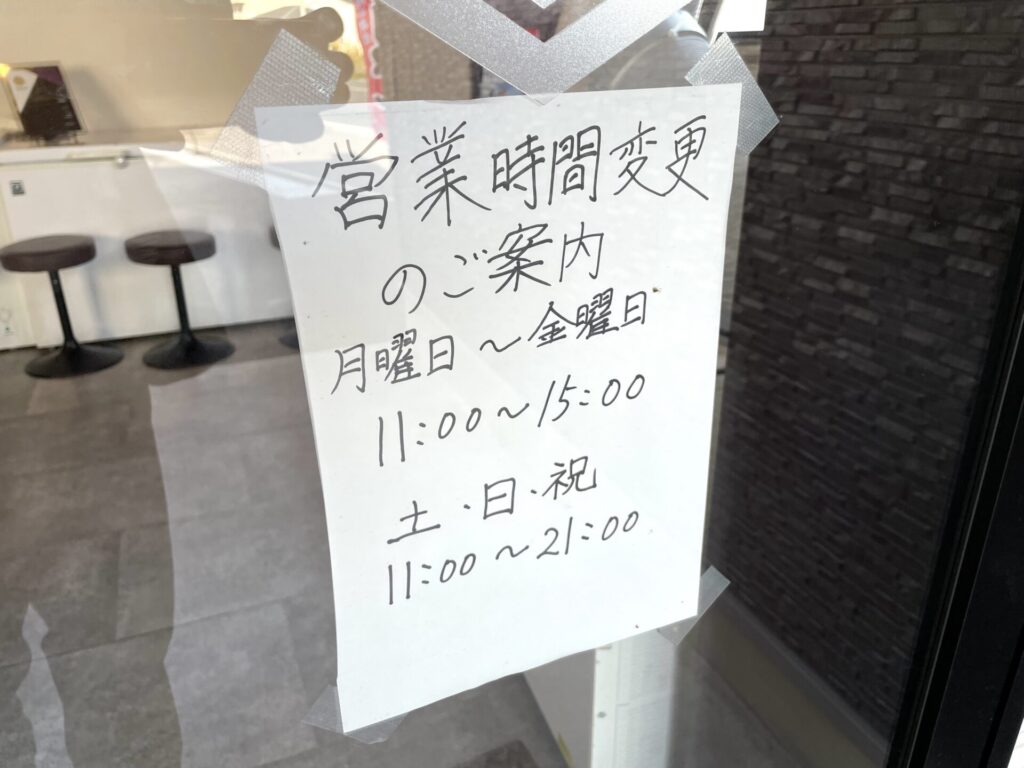 営業時間変更
のご案内
月曜日～金曜日
11:00～15:00
土・日・祝
11:00～21:00